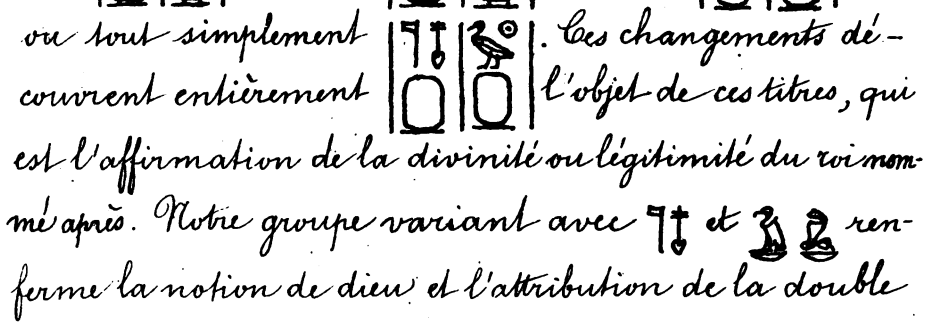 ou tout simplement 𓊹𓄤 𓅭𓇳. Ces changements dé-
couvrent entièrement 𓍷 𓍷 l'objet de ces titres, qui
est l'affirmation de la divinité ou légitimité du roi nom-
mé après. Notre groupe variant avec 𓊹𓄤 et ren-
ferme la notion de dieu et l'attribution de la double